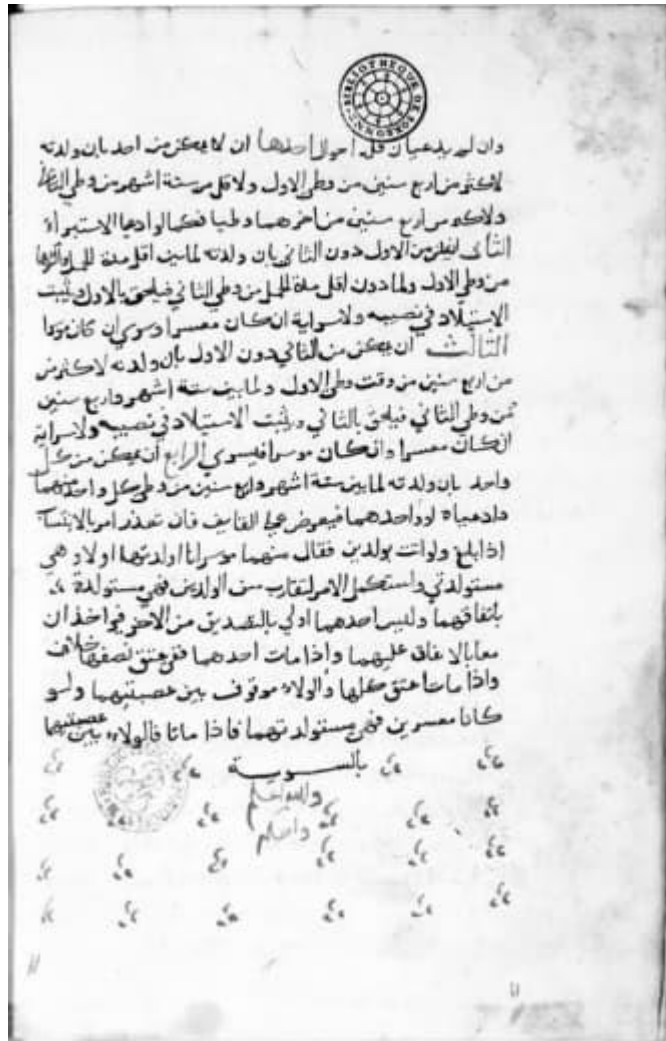 BIBLIOTHEQUE DE SORBONNE
وان لم يدعيا فله احوال احدها ان لا يمكن من احد بان ولدته
لاكثر من اربع سنين من وطى الاول ولاقل من ستة اشهر من وطى الثانى
ولاكثر من اربع سنين من اخرهما وطيا فكما لو ادعيا الاستبراء
الثانى ان يمكن من الاول دون الثاني بان ولدته لما بين اقل مدة الحمل واكثرها
من وطى الاول ولما دون اقل مدة الحمل من وطى الثاني فيلحق بالاول ويثبت
الاستيلاد في نصيبه ولا سراية ان كان معسرا وسوي ان كان موسرا
الثالث ان يمكن من الثاني دون الاول بان ولدته لاكثر من
من اربع سنين من وقت وطى الاول ولما بين ستة اشهر واربع سنين
من وطى الثاني فيلحق بالثاني ويثبت الاستيلاد في نصيبه ولا سراية
ان كان معسرا وان كان موسرا فيسوي الرابع ان يمكن من كل
واحد بان ولدته لما بين ستة اشهر واربع سنين من وطى كل واحد منهما
وادعياه او احدهما فيعرض على القايف فان تعذر امر بالانتساب
اذا بلغ ولو اتت بولدين فقال منهما موسرانا اولدتها اولا وهي
مستولدتي واستكمل الامر لتقارب سن الولدين فهي مستولدة
باتفاقهما وليس احدهما اولي بالتصديق من الاخر فيواخذان
معا بالانفاق عليهما واذا مات احدهما ففي عتق نصفها خلاف
واذا ماتا عتق كلها والولاء موقوف بين عصبتيهما ولو
كانا معسرين فهي مستولدتهما فاذا ماتا فالولاء بين عصبتيهما
بالسوية
والله اعلم
واحكم